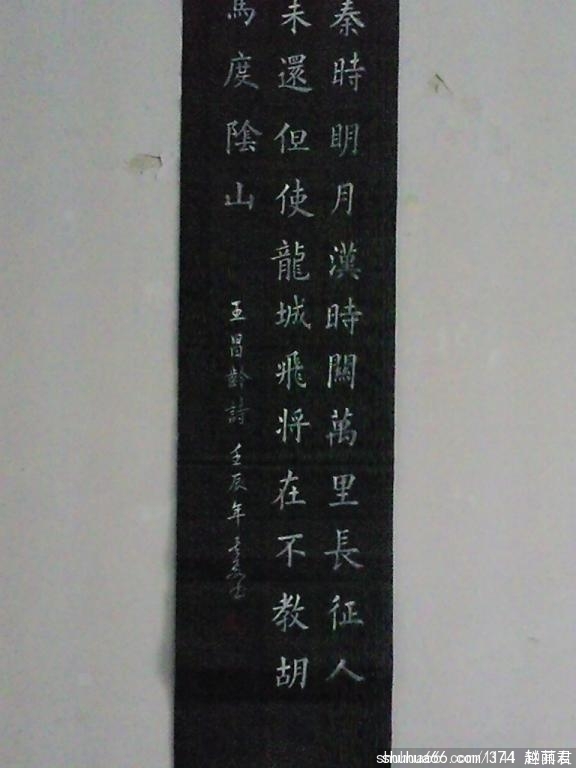 秦時明月漢時關萬里長征人
未還但使龍城飛将在不教胡
馬度陰山
王昌齡詩 壬辰年
shuhua66.com/1374 趙萠君